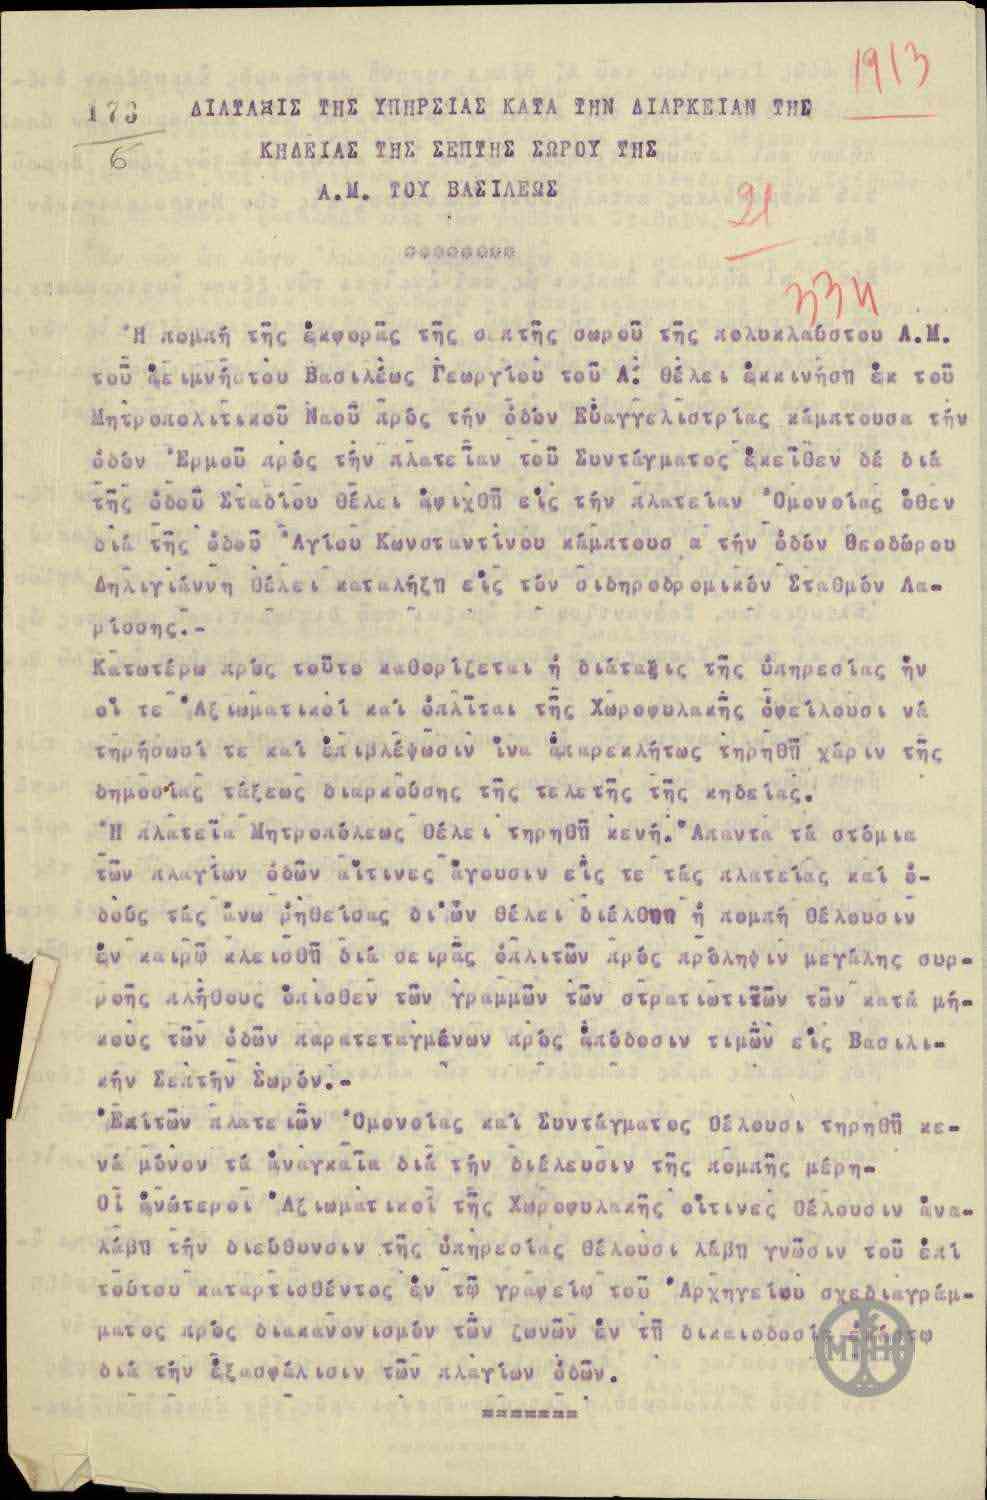 1913
173
6
ΔΙΑΤΑΞΙΣ ΤΗΣ ΥΠΗΡΣΙΑΣ ΚΑΤΑ ΤΗΝ ΔΙΑΡΚΕΙΑΝ ΤΗΣ
ΚΗΔΕΙΑΣ ΤΗΣ ΣΕΠΤΗΣ ΣΩΡΟΥ ΤΗΣ
Α.Μ. ΤΟΥ ΒΑΣΙΛΕΩΣ
21
334
Ἡ πομπή τῆς ἐκφορᾶς τῆς σεπτῆς σωροῦ τῆς πολυκλαύστου Α.Μ.
τοῦ ἀειμνήστου Βασιλέως Γεωργίου τοῦ Α! θέλει ἐκκινήσῃ ἐκ τοῦ
Μητροπολιτικοῦ Ναοῦ πρός τήν ὁδόν Εὐαγγελιστρίας κάμπτουσα τήν
ὁδόν Ἑρμοῦ πρός τήν πλατεῖαν τοῦ Συντάγματος ἐκεῖθεν δέ διά
τῆς ὁδοῦ Σταδίου θέλει ἀφιχθῇ εἰς τήν πλατείαν Ὁμονοίας ὅθεν
διά τῆς ὁδοῦ Ἁγίου Κωνσταντίνου κάμπτουσ α τήν ὁδόν Θεοδώρου
Δηλιγιάννη θέλει καταλήξῃ εἰς τόν σιδηροδρομικόν Σταθμόν Λα-
ρίσσης.-
Κατωτέρω πρός τοῦτο καθορίζεται ἡ διάταξις τῆς ὑπηρεσίας ἥν
οἵ τε Ἀξιωματικοί καί ὁπλῖται τῆς Χωροφυλακῆς ὀφείλουσι νά
τηρήσωσί τε καί ἐπιβλέψωσιν ἵνα ἀπαρεκλήτως τηρηθῇ χάριν τῆς
δημοσίας τάξεως διαρκούσης τῆς τελετῆς τῆς κηδείας.
Ἡ πλατεῖα Μητροπόλεως θέλει τηρηθῇ κενή. Ἅπαντα τά στόμια
τῶν πλαγίων ὁδῶν αἵτινες ἄγουσιν εἰς τε τάς πλατείας καί ὁ-
δούς τάς ἄνω ρηθείσας δι'ὧν θέλει διέλθῃ ἡ πομπή θέλουσιν
ἐν καιρῷ κλεισθῇ διά σειρᾶς ὁπλιτῶν πρός πρόληψιν μεγάλης συρ-
ροῆς πλήθους ὄπισθεν τῶν γραμμῶν τῶν στρατιωτιτῶν τῶν κατά μῆ-
κους τῶν ὁδῶν παρατεταγμένων πρός ἀπόδοσιν τιμῶν εἰς Βασιλι-
κήν Σεπτήν Σωρόν.-
Ἐπίτῶν πλατειῶν Ὁμονοίας καί Συντάγματος θέλουσι τηρηθῇ κε-
νά μόνον τά ἀναγκαῖα διά τήν διέλευσιν τῆς πομπῆς μέρη-
Οἱ ἀνώτεροι Ἀξιωματικοί τῆς Χωροφυλακῆς οἵτινες θέλουσιν ἀνα-
λάβῃ τήν διεύθυνσιν τῆς ὑπηρεσίας θέλουσι λάβῃ γνῶσιν τοῦ ἐπί
τούτου καταρτισθέντος ἐν τῷ γραφείῳ τοῦ Ἀρχηγείου σχεδιαγράμ-
ματος πρός διακανονισμόν τῶν ζωνῶν ἐν τῇ δικαιοδοσίᾳ ἑκάστῳ
διά τήν ἐξασφάλισιν τῶν πλαγίων ὁδῶν.
========